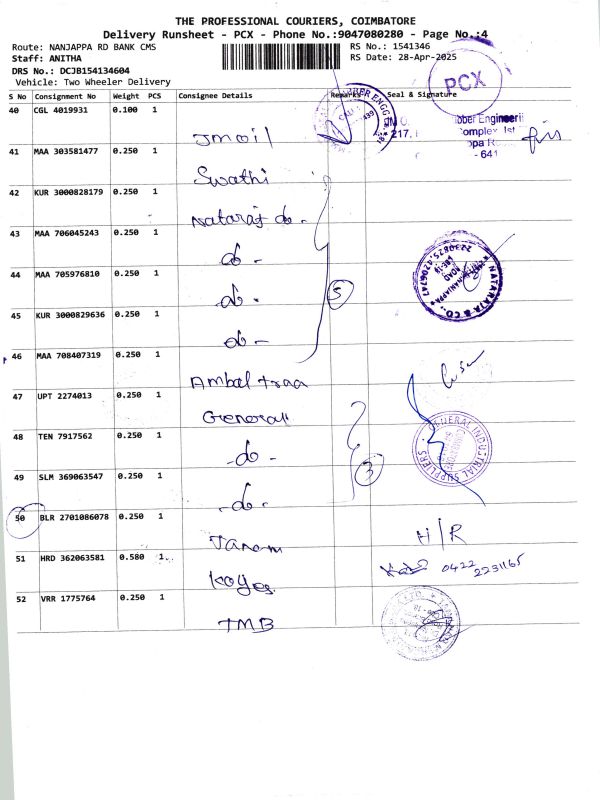 THE PROFESSIONAL COURIERS, COIMBATORE
Delivery Runsheet - PCX - Phone No.:9047080280 - Page No.:4
Route: NANJAPPA RD BANK CMS
RS No.: 1541346
Staff: ANITHA
RS Date: 28-Apr-2025
DRS No.: DCJB154134604
Vehicle: Two Wheeler Delivery
PCX
S No Consignment No Weight PCS Consignee Details Remarks Seal & Signature
40 CGL 4019931 0.100 1
Jmail
217,
Complex, Ist
- 641
41 MAA 303581477 0.250 1
Swathi
42 KUR 3000828179 0.250 1
Nataraj do-
43 MAA 706045243 0.250 1
do-
44 MAA 705976810 0.250 1
do-
5
NATARAJA & CO.
45 KUR 3000829636 0.250 1
do-
46 MAA 708407319 0.250 1
Ambal traa
47 UPT 2274013 0.250 1
General
48 TEN 7917562 0.250 1
-do-
3
GENERAL INDUSTRIAL SUPPLIERS
49 SLM 369063547 0.250 1
-do-
50 BLR 2701086078 0.250 1
H/R
51 HRD 362063581 0.580 1
0422
2231165
52 VRR 1775764 0.250 1
TMB